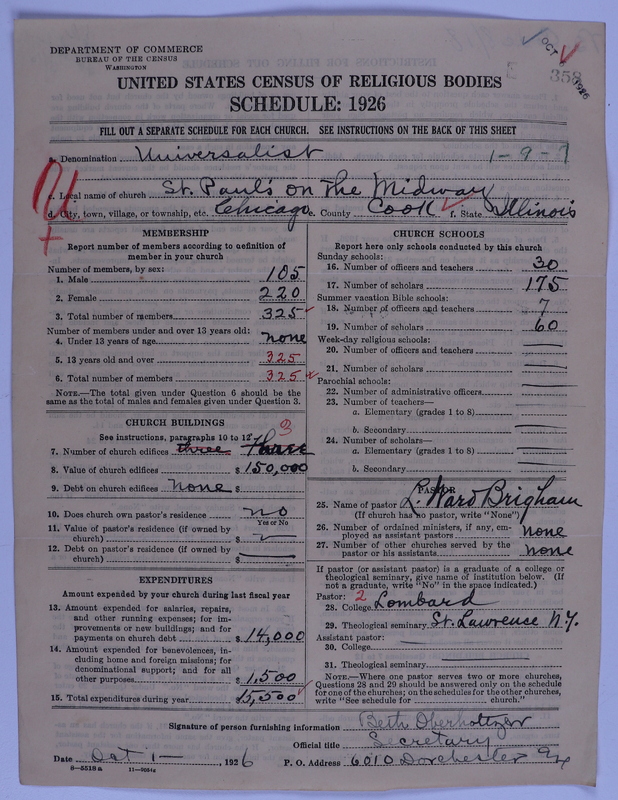 DEPARTMENT OF COMMERCE
BUREAU OF THE CENSUS
WASHINGTON
OCT 1926
358
UNITED STATES CENSUS OF RELIGIOUS BODIES
SCHEDULE: 1926
FILL OUT A SEPARATE SCHEDULE FOR EACH CHURCH. SEE INSTRUCTIONS ON THE BACK OF THIS SHEET
a. Denomination Universalist 1-9-7
c. Local name of church St. Paul's on the Midway
d. City, town, village, or township, etc. Chicago e. County Cook f. State Illinois
MEMBERSHIP
Report number of members according to definition of
member in your church
Number of members, by sex:
1. Male 105
2. Female 220
3. Total number of members 325
Number of members under and over 13 years old:
4. Under 13 years of age none
5. 13 years old and over 325
6. Total number of members 325
NOTE.—The total given under Question 6 should be the
same as the total of males and females given under Question 3.
CHURCH BUILDINGS
See instructions, paragraphs 10 to 12 3
7. Number of church edifices three Three
8. Value of church edifices $150,000
9. Debt on church edifices none $
10. Does church own pastor's residence no
Yes or No
11. Value of pastor's residence (if owned by
church) $
12. Debt on pastor's residence (if owned by
church) $
EXPENDITURES
Amount expended by your church during last fiscal year
13. Amount expended for salaries, repairs,
and other running expenses; for im-
provements or new buildings; and for
payments on church debt $14,000
14. Amount expended for benevolences, in-
cluding home and foreign missions; for
denominational support; and for all
other purposes $1,500
15. Total expenditures during year $15,500
CHURCH SCHOOLS
Report here only schools conducted by this church
Sunday schools:
16. Number of officers and teachers 30
17. Number of scholars 175
Summer vacation Bible schools:
18. Number of officers and teachers 7
19. Number of scholars 60
Week-day religious schools:
20. Number of officers and teachers
21. Number of scholars
Parochial schools:
22. Number of administrative officers
23. Number of teachers—
a. Elementary (grades 1 to 8)
b. Secondary
24. Number of scholars—
a. Elementary (grades 1 to 8)
b. Secondary
PASTOR
25. Name of pastor L. Ward Brigham
(If church has no pastor, write "None")
26. Number of ordained ministers, if any, em-
ployed as assistant pastors none
27. Number of other churches served by the
pastor or his assistants none
If pastor (or assistant pastor) is a graduate of a college or
theological seminary, give name of institution below. (If
not a graduate, write "No" in the space indicated.)
Pastor: 2
28. College Lombard
29. Theological seminary St. Lawrence N.Y.
Assistant pastor:
30. College
31. Theological seminary
NOTE.—Where one pastor serves two or more churches,
Questions 28 and 29 should be answered only on the schedule
for one of the churches; on the schedules for the other churches,
write "See schedule for church."
Signature of person furnishing information Beth Oberholtzer
Official title Secretary
Date Oct 1— , 1926 P. O. Address 6010 Dorchester Av
8—5518a 11—9064a